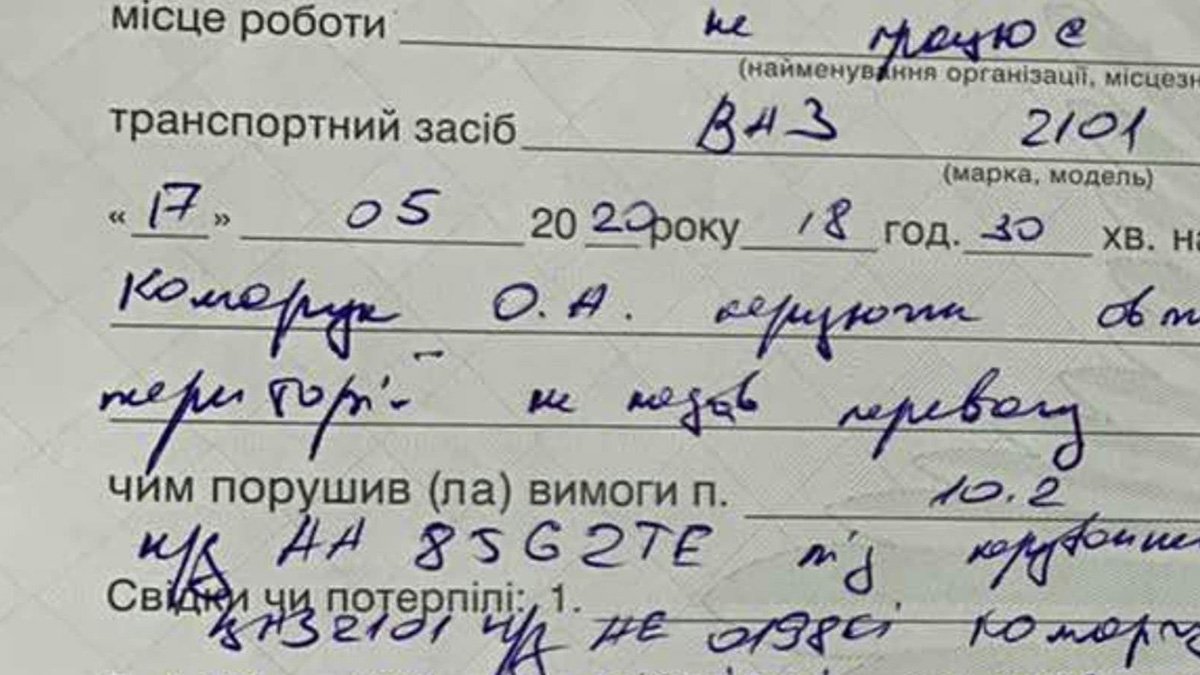 місце роботи не працює
(найменування організації, місцезн
транспортний засіб ВАЗ 2101
(марка, модель)
« 17 » 05 20 20 року 18 год. 30 хв. на
Комарук О.А. керуючи авт
території не надав перевагу
чим порушив (ла) вимоги п. 10.2
н/з АА 8562ТЕ під керування
Свідки чи потерпілі: 1.
ВАЗ 2101 н/з АЕ